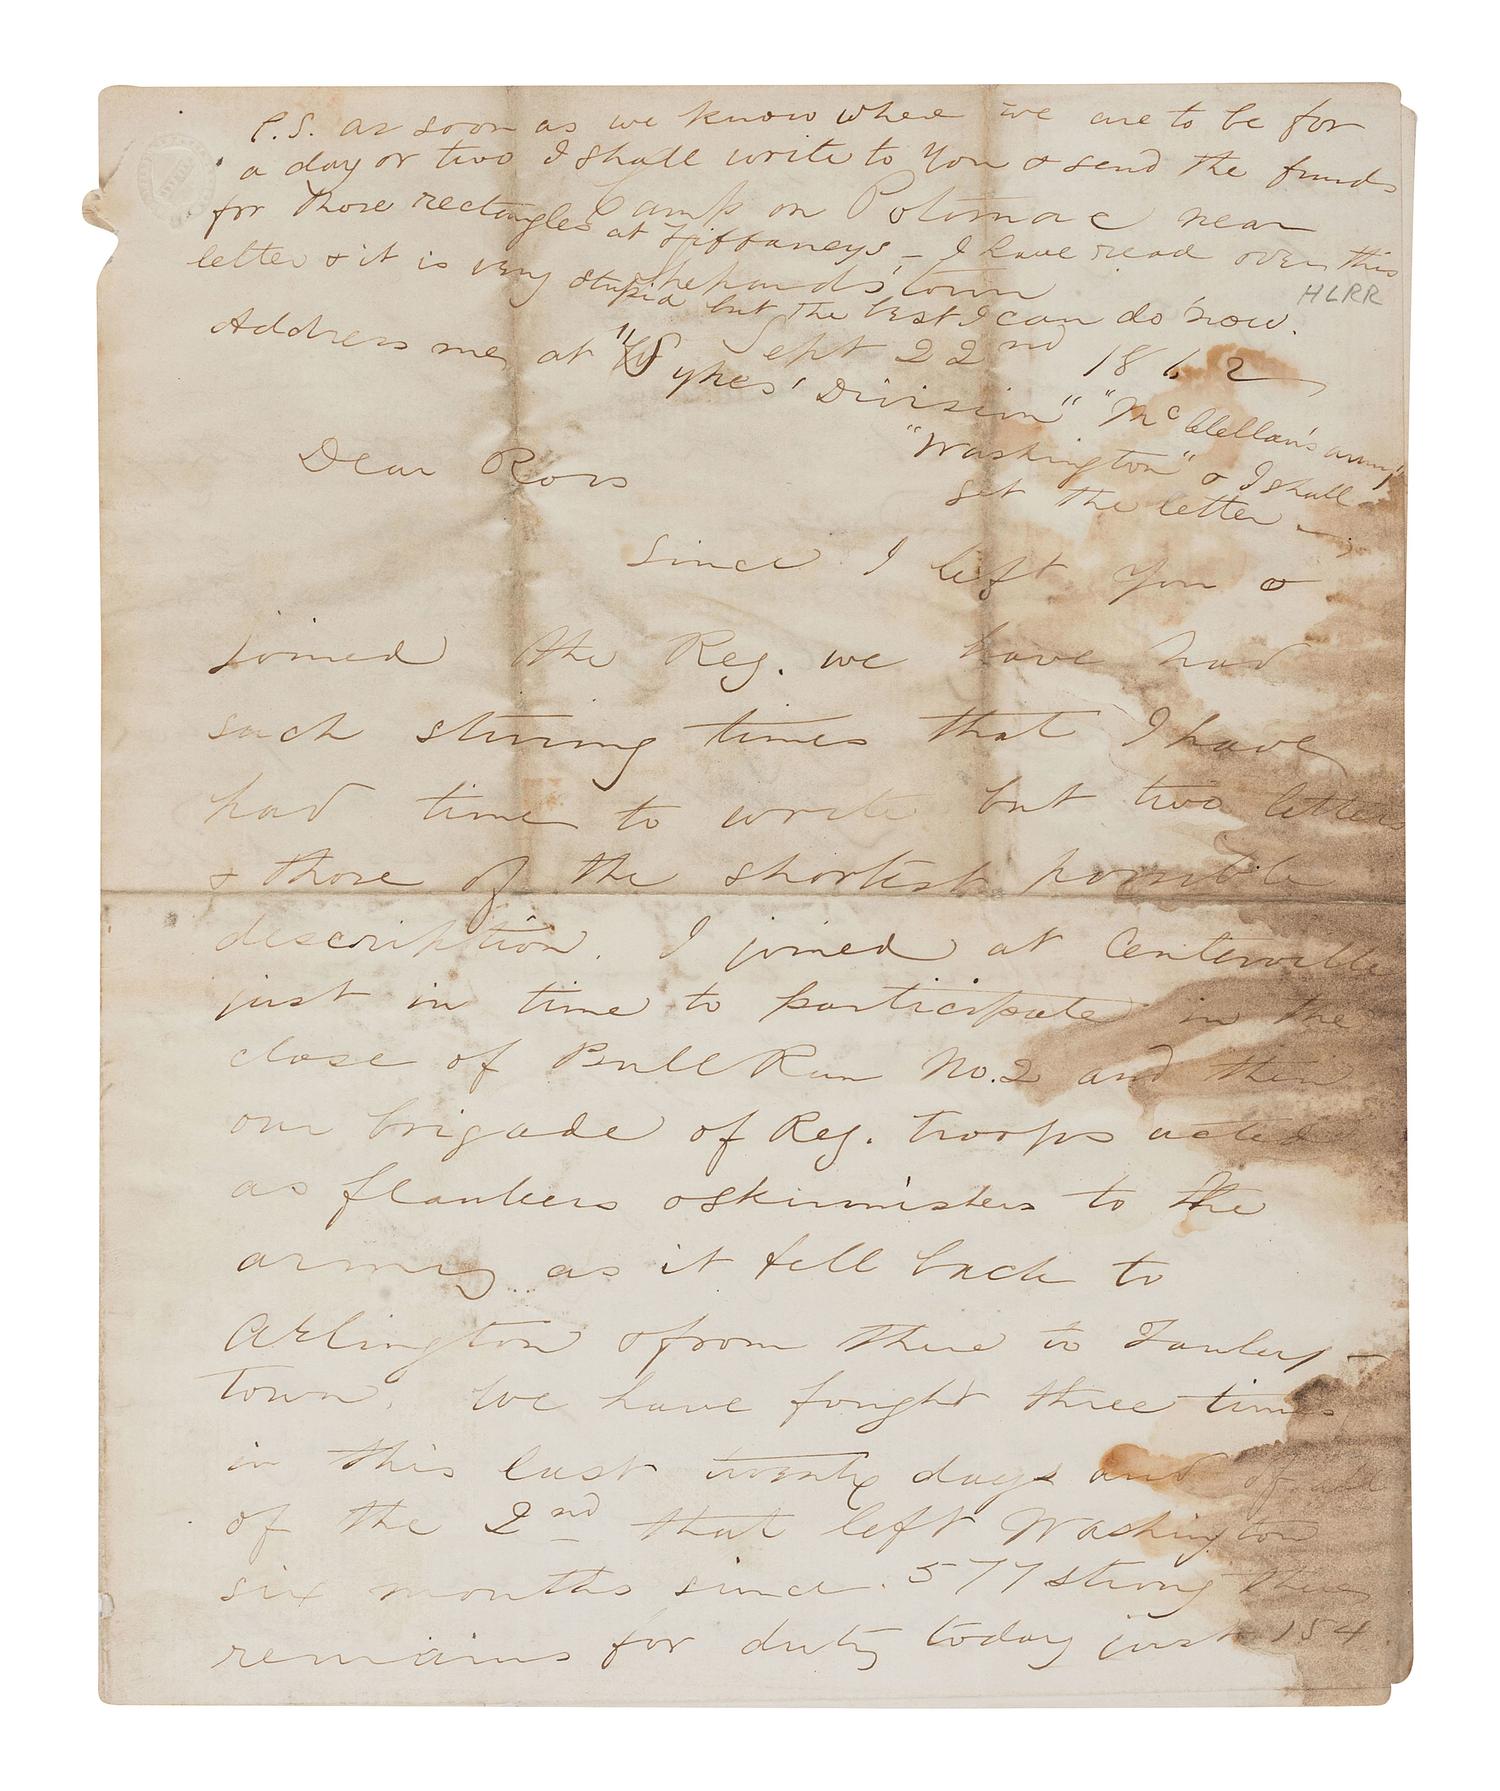 P.S. as soon as we know where we are to be for
a day or two I shall write to you & send the funds
for those rectangles at Tiffaneys – I have read over this
letter & it is very stupid but the best I can do now.
Address me, at "Sykes' Division" "McClellan's army"
"Washington" & I shall
get the letter –
HLRR
Camp on Potomac near
Shephards'town
Sept 22nd 1862
Dear Ross
Since I left you &
joined the Reg. we have had
such stirring times that I have
had time to write but two letters
& those of the shortest possible
description. I joined at Centerville
just in time to participate in the
close of Bull Run No. 2 and then
our brigade of Reg. troops acted
as flankers & skirmisters to the
army as it fell back to
Arlington & from there to Tanley-
town. We have fought three times
in this last twenty days and of all
of the 2nd that left Washington
six months since. 577 strong there
remains for duty today just 154.